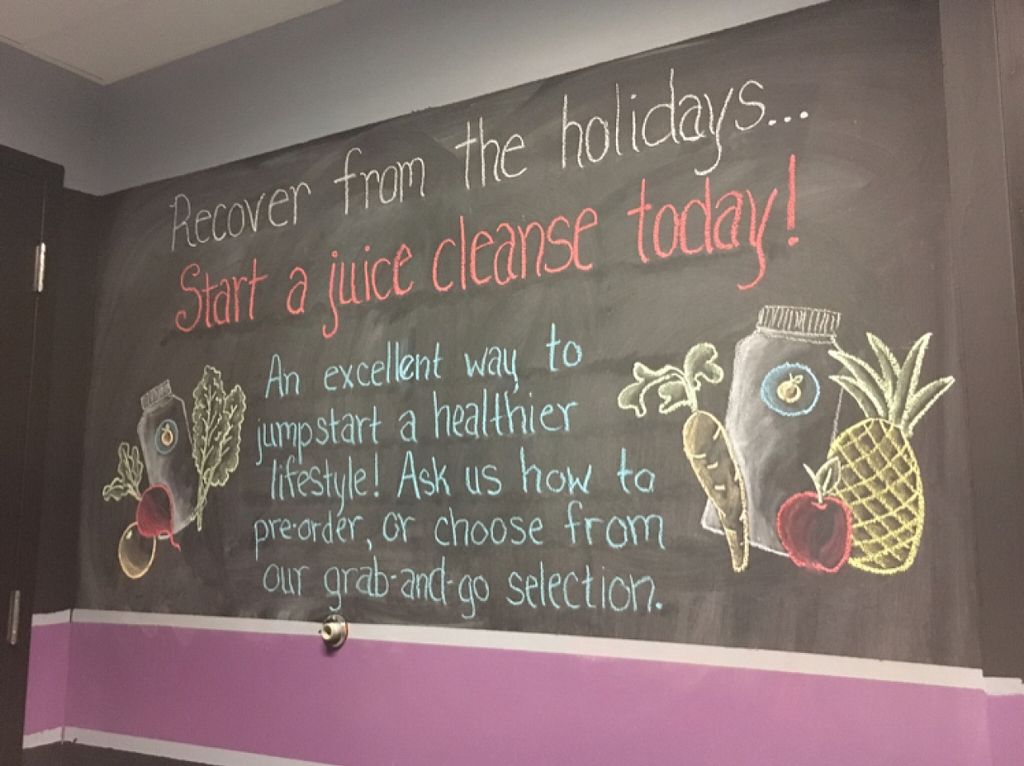 Recover from the holidays...
Start a juice cleanse today!
An excellent way to
jumpstart a healthier
lifestyle! Ask us how to
pre-order, or choose from
our grab-and-go selection.